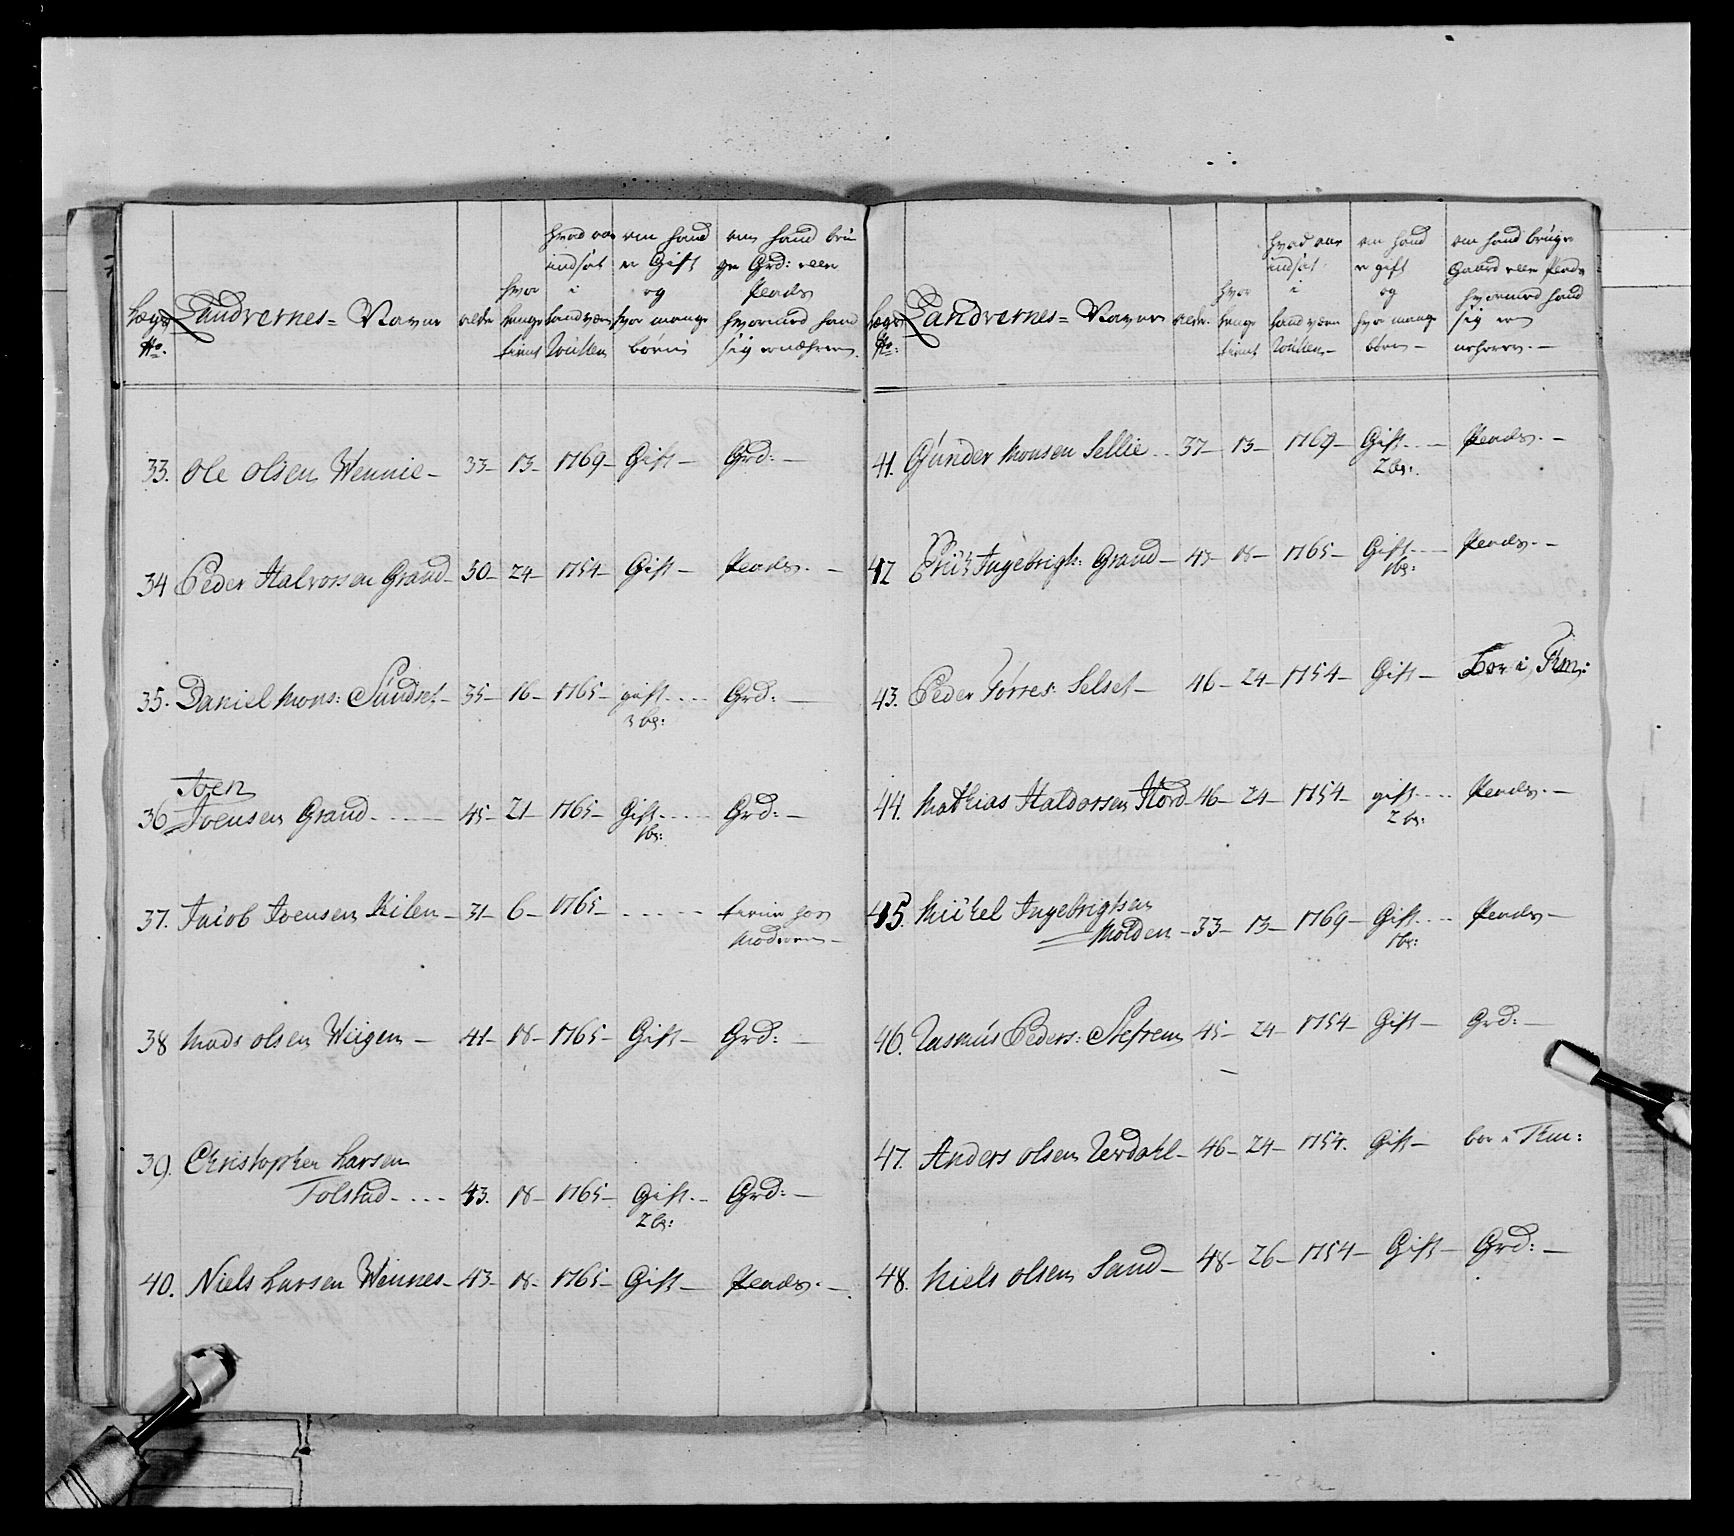 Lægs No: Landvernes = Navne alder hvor lenge tient hvad aar indsat i Landværn Rullen om hand er Gift og hvor mange børn om hand bru ger Grd: eller Plads hvormed hand sig ernæhrer.
33. Ole Olsen Wennie - 33 - 13 - 1769 - Gift - Grd: -
34 Peder Halvorsen Grand - 30 - 24 - 1754 - Gift - Plads. -
35. Daniel Mons: Sundset - 35 - 16 - 1765 - gift .... Grd: -
3 bø:
Joen
36 Joensen Grand ..... 45 - 21 - 1765 - Gift .... Grd: -
1 bø:
37. Jacob Joensen Kilen - 31 - 6 - 1765 - .... hos
Moderen -
38 Mads Olsen Wiigen - 41 - 18 - 1765 - Gift - Grd: -
39. Christopher Larsen
Tolstad .... 43. 18 - 1765 - Gift. - Grd: -
2 bø:
40. Niels Larsen Wennes - 43 - 18 - 1765 - Gift - Plads. -
Lægs No: Landvernes = Navne alder. hvor lenge tient hvad aar indsat i Landværn Rullen - om hand er gift og hvor mange børn - om hand bruger Gaard eller Plads hvormed hand sig er nehrer. -
41. Gunder Monsen Sellie .. 37 - 13 - 1769 - Gift. - Plads. -
2 bø:
42 Erik Ingebrigts: Grand - 43 - 18 - 1765 - Gift. - Plads. -
1 bø:
43. Peder Tørres: Selset - 46 - 24 - 1754 - Gift - Boer i Fm:
44. Mathias Haldorsen Hord 46 - 24 - 1754 - gift .... Plads. -
2 bø:
45. Mikkel Ingebrigtsen
Molden - 33 - 13 - 1769 - Gift .... Plads -
1 bø:
46. Rasmus Peders: - 45 - 24 - 1754 - Gift - Grd: -
47. Anders Olsen Werdahl - 46 - 24 - 1754. Gift - boer i Fm:
48. Niels Olsen Sand - 48 - 26 - 1754 - Gift - Grd: -